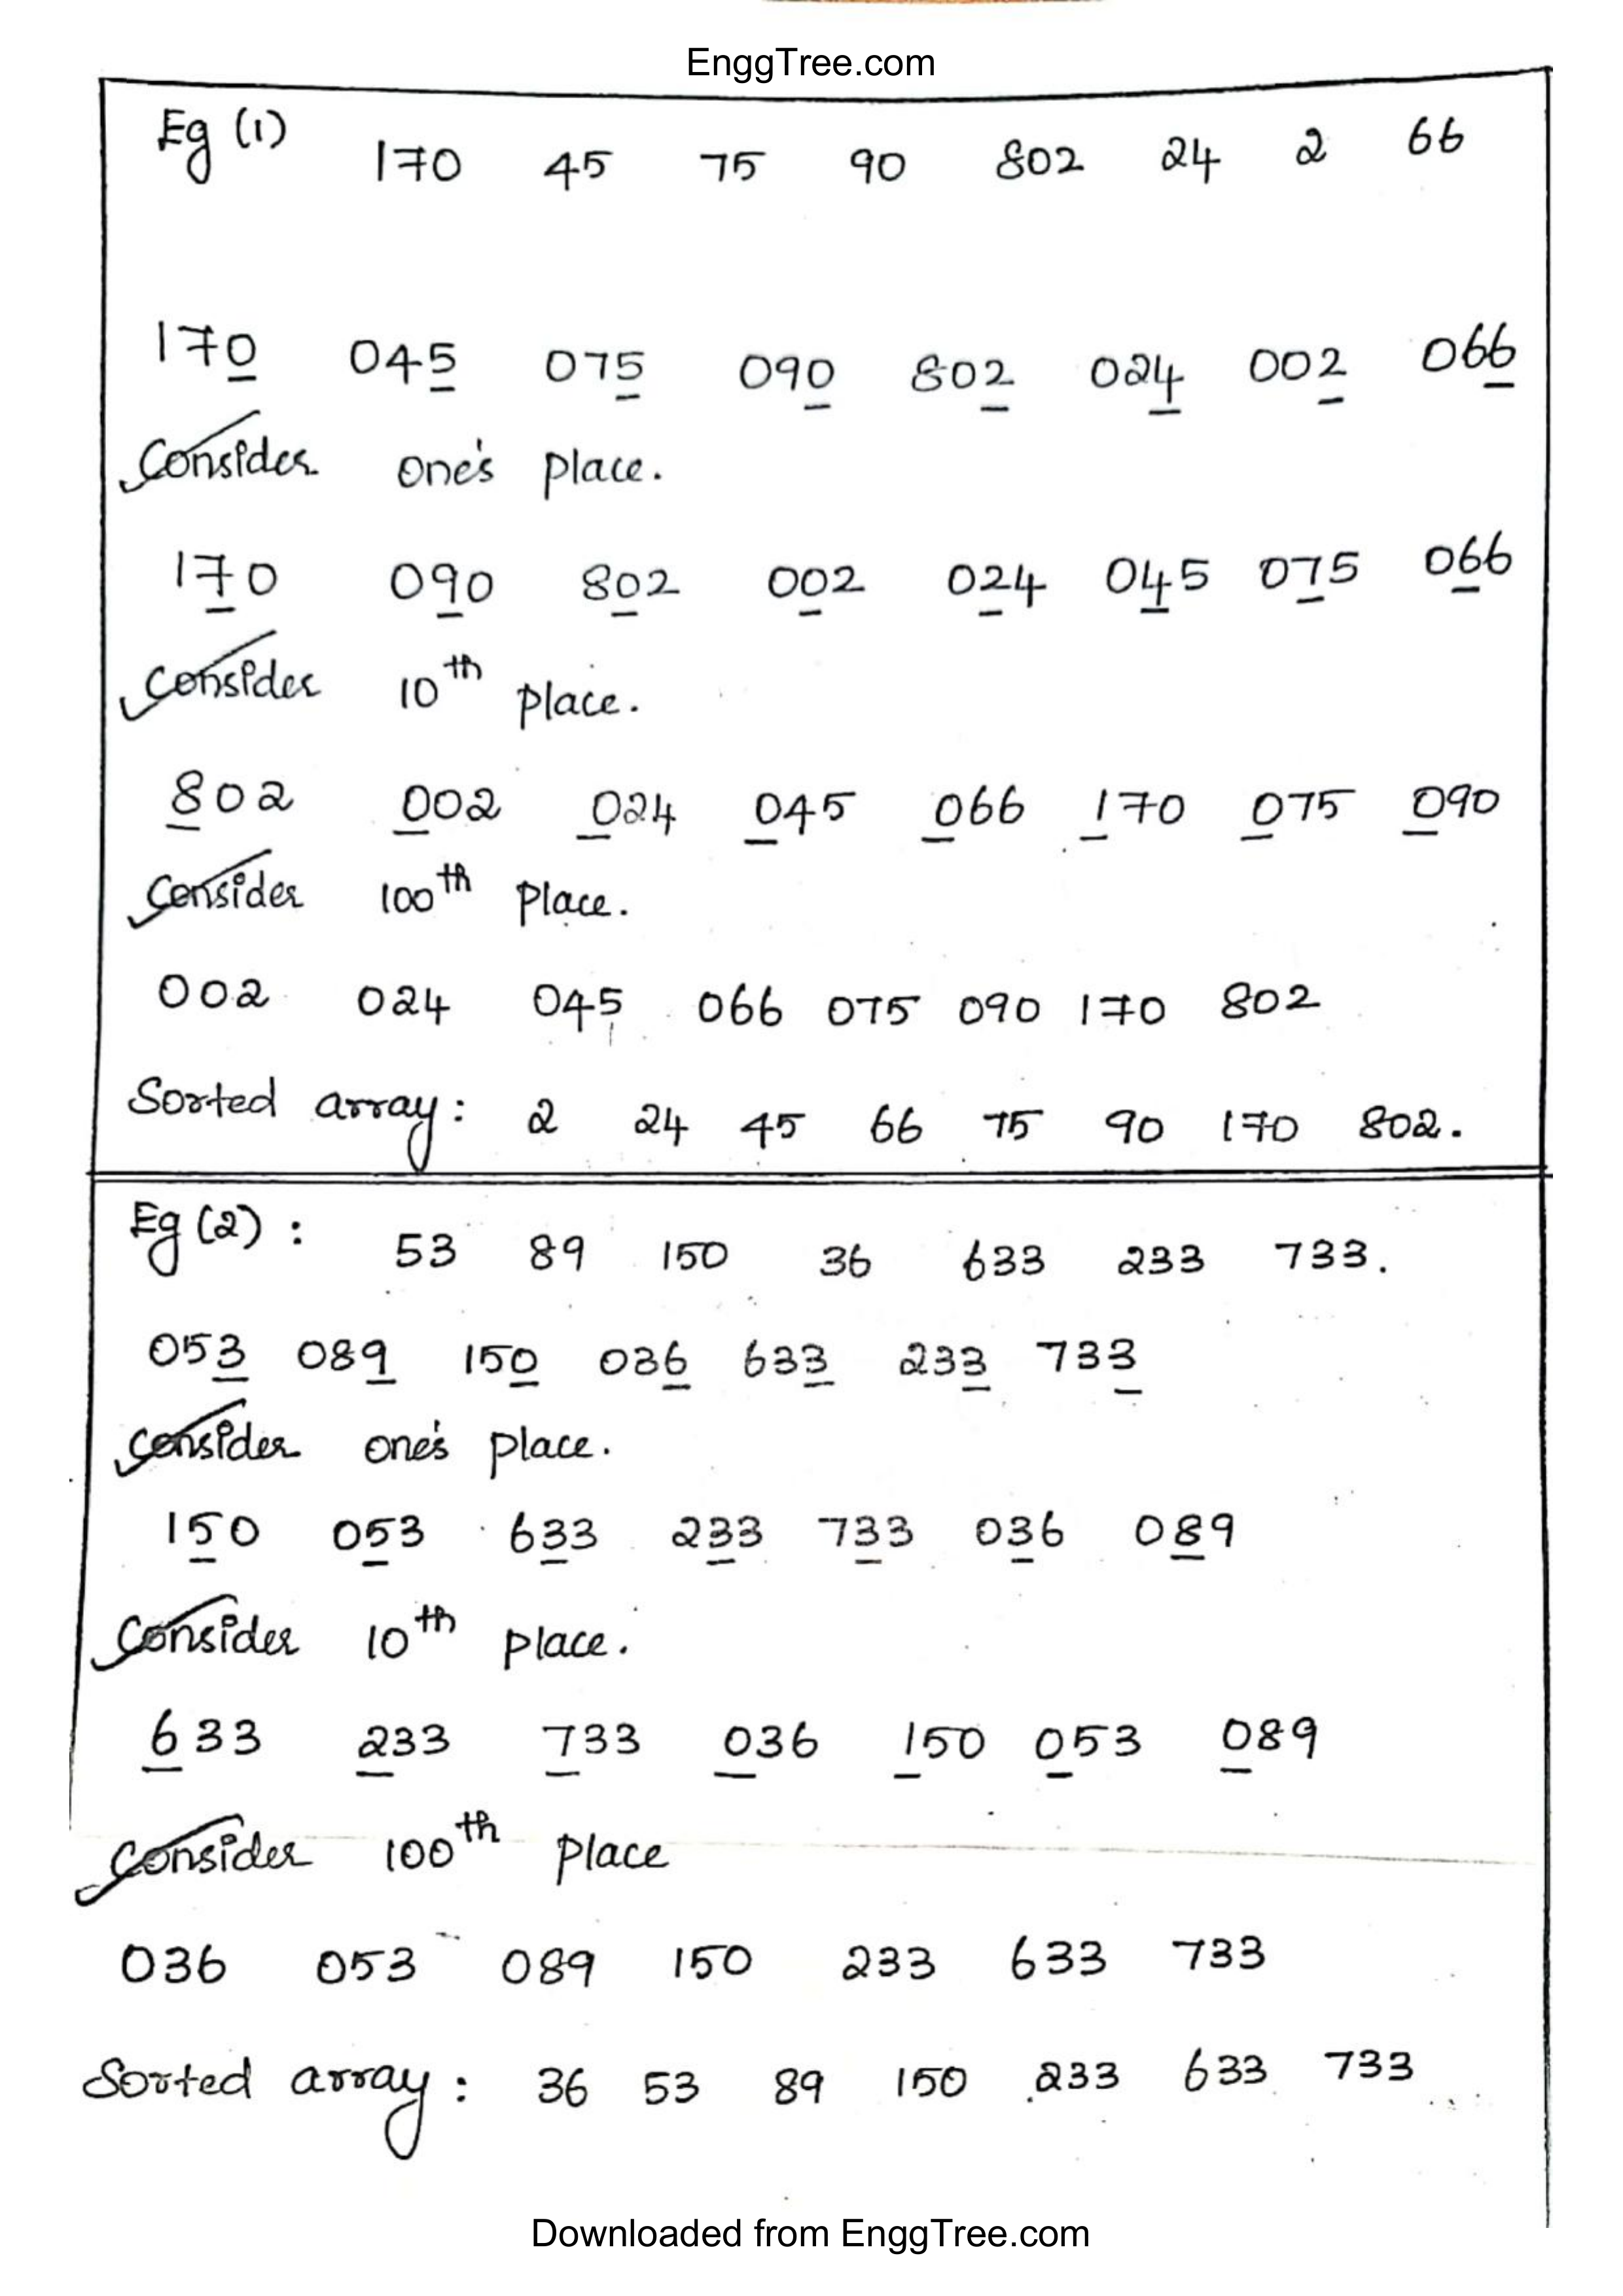 EnggTree.com
Eg (1) 170 45 75 90 802 24 2 66
170 045 075 090 802 024 002 066
Consider one's place.
170 090 802 002 024 045 075 066
Consider 10th place.
802 002 024 045 066 170 075 090
Consider 100th place.
002 024 045 066 075 090 170 802
Sorted array: 2 24 45 66 75 90 170 802.
Eg (2) : 53 89 150 36 633 233 733.
053 089 150 036 633 233 733
Consider one's place.
150 053 633 233 733 036 089
Consider 10th place.
633 233 733 036 150 053 089
Consider 100th place
036 053 089 150 233 633 733
Sorted array : 36 53 89 150 233 633 733
Downloaded from EnggTree.com